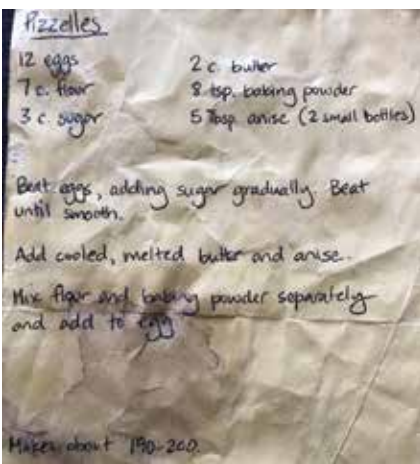 Pizzelles
12 eggs
7 c. flour
3 c. sugar
2 c. butter
8 tsp. baking powder
5 Tbsp. anise (2 small bottles)
Beat eggs, adding sugar gradually. Beat
until smooth.
Add cooled, melted butter and anise.
Mix flour and baking powder separately
and add to egg
Makes about 190-200.